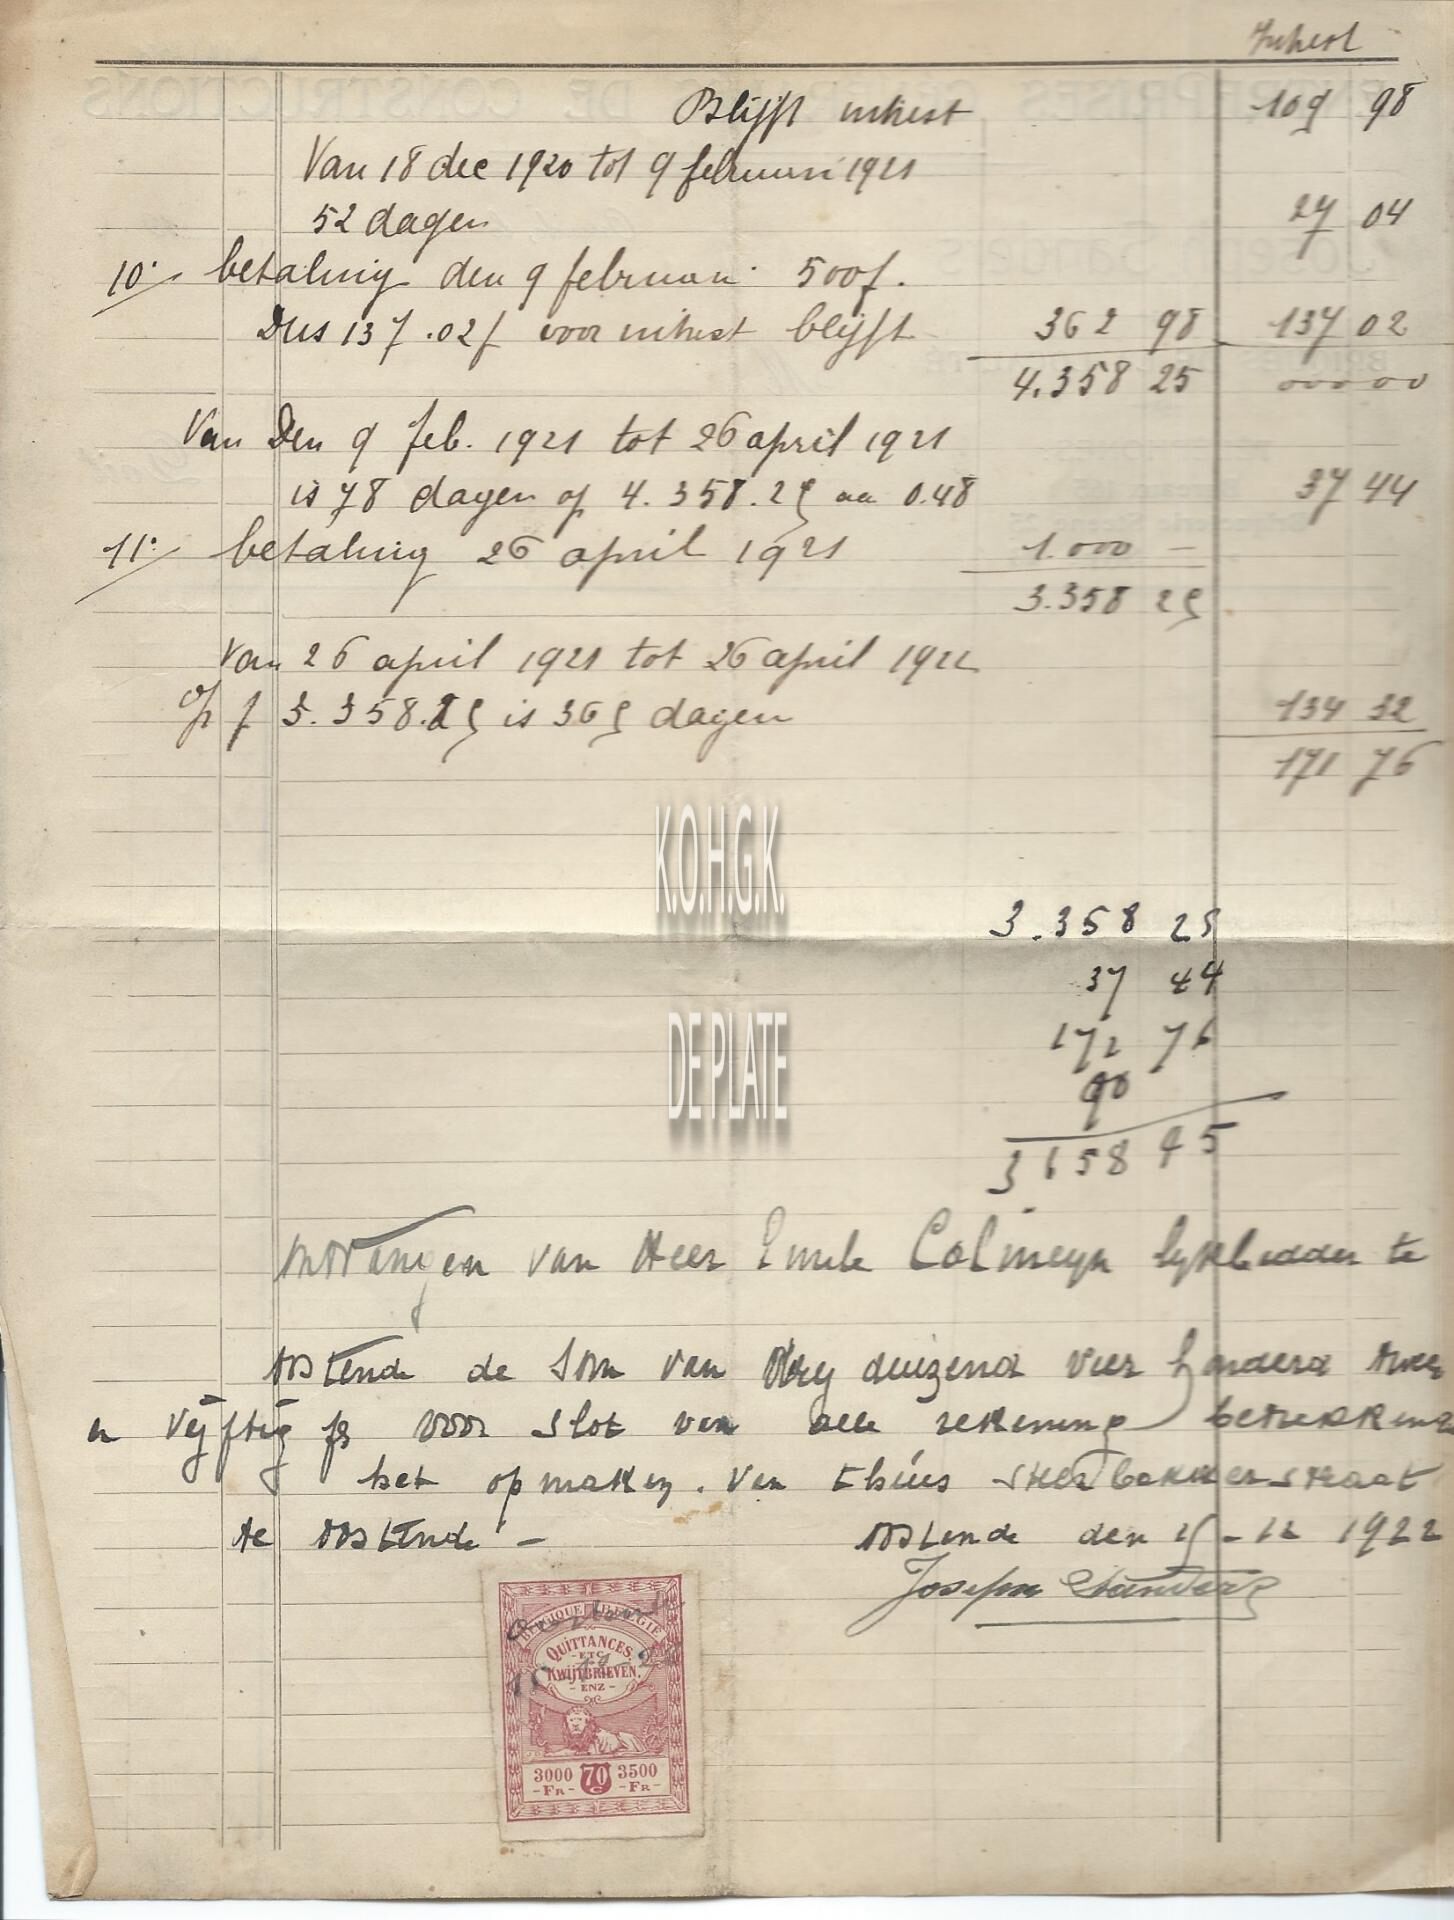 Intrest
Blijft intrest 109 98
Van 18 dec 1920 tot 9 februari 1921
52 dagen 27 04
10. betaling den 9 februari 500f.
Dus 137.02f voor intrest blijft 362 98 137 02
4.358 25 000 00
Van Den 9 feb. 1921 tot 26 april 1921
is 78 dagen op 4.358.25 aa 0.48 37 44
11. betaling 26 april 1921 1.000 —
3.358 25
Van 26 april 1921 tot 26 april 1922
op f 3.358.25 is 365 dagen 134 32
171 76
K.O.H.G.K.
3.358 25
37 44
DE PLATE
172 76
90
3658 45
ontvangen van Heer Emile Colmeyn te
oostende de som van drij duizend vier honderd twee
en vijftig fr voor slot van alle rekening
het opmaken van thuis straat
te oostende — oostende den 15-12 1922
Joseph
BELGIQUE BELGIË
QUITTANCES
- ETC -
KWIJTBRIEVEN.
- ENZ -
3000 70 3500
- FR - C - FR -